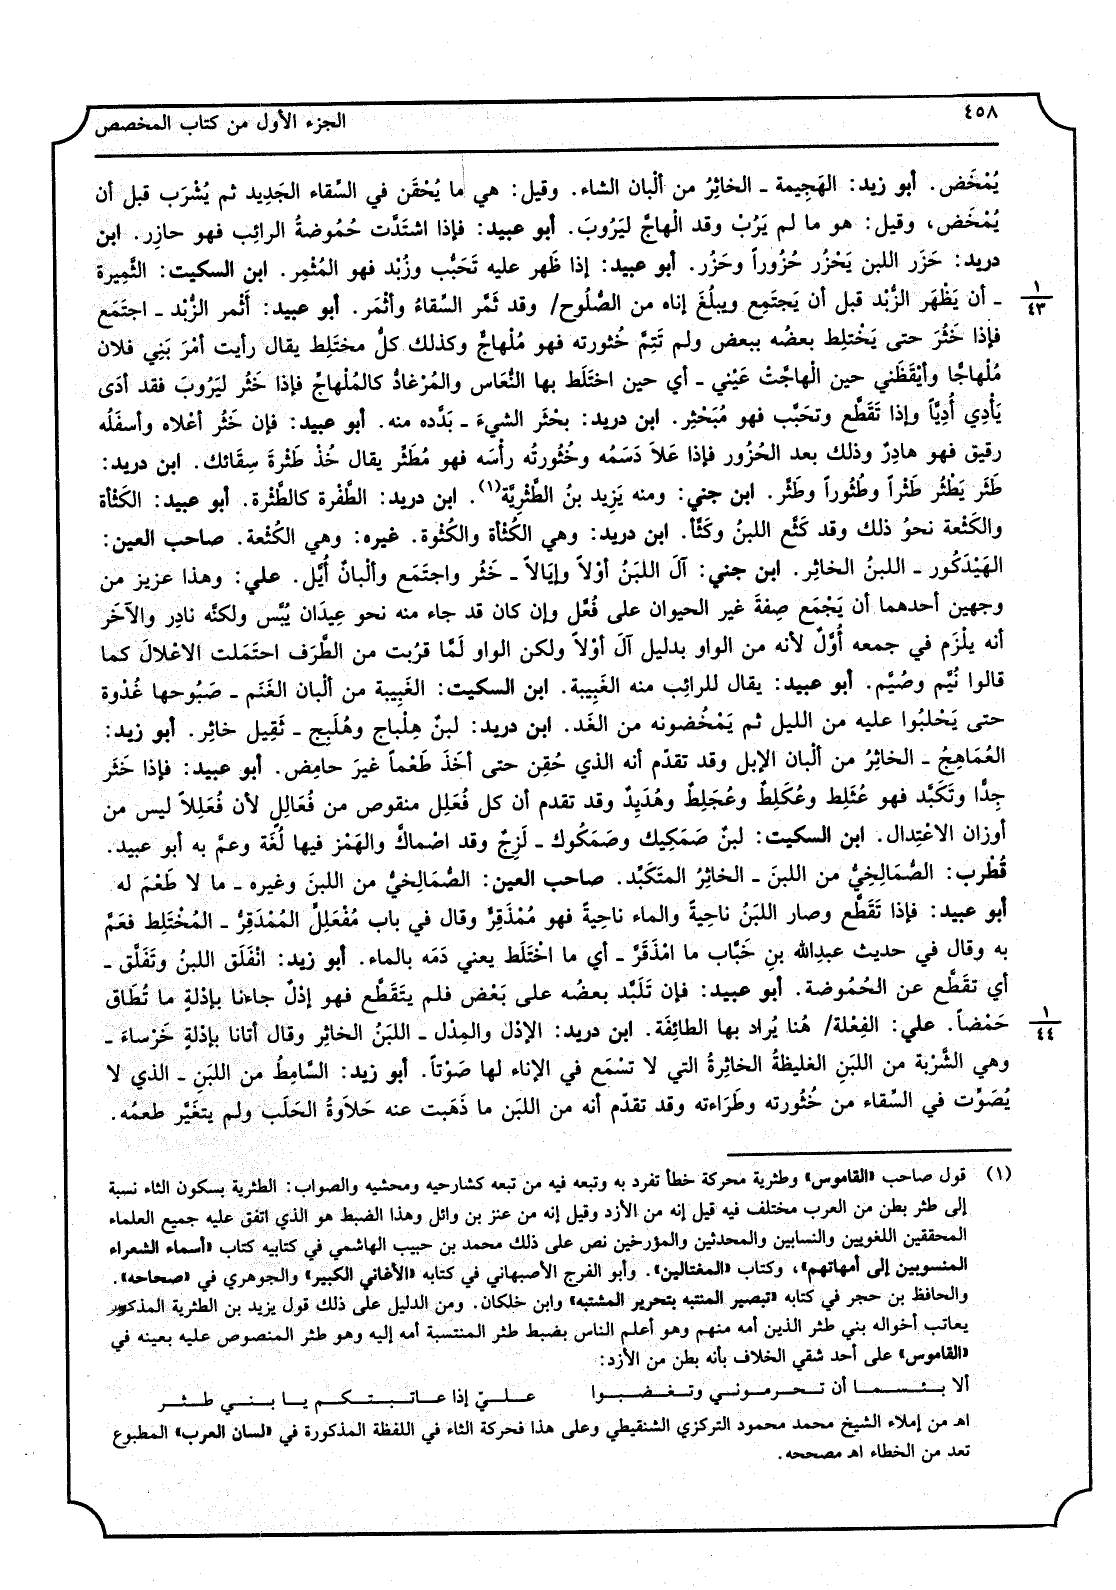 ٤٥٨
الجزء الأول من كتاب المخصص
يُمْخَض. أبو زيد: الهَجِيمة ـ الخاثِرُ من ألْبان الشاء. وقيل: هي ما يُحْقَن في السِّقاء الجَدِيد ثم يُشْرَب قبل أن
يُمْخَض، وقيل: هو ما لم يَرُبْ وقد الْهاجَّ ليَرُوبَ. أبو عبيد: فإذا اشتَدَّت حُمُوضةُ الرائِب فهو حازِر. ابن
دريد: حَزَر اللبن يَحْزُر حُزُوراً وحَزُر. أبو عبيد: إذا ظَهر عليه تَحَبُّب وزُبْد فهو المُثْمِر. ابن السكيت: الثَّمِيرة
ـ أن يَظْهَر الزُّبْد قبل أن يَجتَمِع ويبلُغَ إناه من الصُّلُوح/ وقد ثَمَّر السِّقاءُ وأثْمَر. أبو عبيد: أَثْمر الزُّبْد ـ اجتَمَع
١
٤٣
فإذا خَثُرَ حتى يَخْتلِط بعضُه ببعض ولم تَتِمَّ خُثورته فهو مُلْهاجٌ وكذلك كلُّ مختَلِط يقال رأيت أمْرَ بَنِي فلان
مُلْهاجًا وأيْقَظَني حين الْهاجَّتْ عَيْني ـ أي حين اختَلَط بها النُّعَاس والمُرْغادُّ كالمُلْهاجِّ فإذا خَثُر ليَرُوبَ فقد أدَى
يَأْدِي أُدِيًّا وإذا تَقَطَّع وتحَبَّب فهو مُبَحْثِر. ابن دريد: بحْثَر الشيءَ ـ بَدَّده منه. أبو عبيد: فإن خَثُر أعْلاه وأسفَلُه
رقيق فهو هادِرٌ وذلك بعد الحُزُور فإذا عَلاَ دَسَمُه وخُثورتُه رأْسَه فهو مُطَثَّر يقال خُذْ طَثْرةَ سِقَائك. ابن دريد:
طَثَر يَطْثُر طَثْراً وطُثُوراً وطَثَّر. ابن جني: ومنه يَزِيد بنُ الطَّثْرِيَّة(١). ابن دريد: الطَّفْرة كالطَّثْرة. أبو عبيد: الكَثْأة
والكَثْعة نحوُ ذلك وقد كَثَّع اللبنُ وكَثَّأ. ابن دريد: وهي الكُثْأة والكُثْوة. غيره: وهي الكُثْعة. صاحب العين:
الهَيْدَكُور ـ اللبنُ الخاثِر. ابن جني: آلَ اللبَنُ أوْلاً وإيَالاً ـ خَثُر واجتَمَع وألْبانٌ أُيَّل. علي: وهذا عزيز من
وجهين أحدهما أن يَجْمَع صِفةَ غير الحيوان على فُعَّل وإن كان قد جاء منه نحو عِيدَان يُبَّس ولكنَّه نادِر والآخَر
أنه يلْزَم في جمعه أُوَّلٌ لأنه من الواو بدليل آلَ أوْلاً ولكن الواو لَمَّا قرُبت من الطَّرَف احتَمَلت الاعْلالَ كما
قالوا نُيَّم وصُيَّم. أبو عبيد: يقال للرائِب منه الغَبِيبة. ابن السكيت: الغَبِيبة من ألبان الغَنَم ـ صَبُوحها غُدْوة
حتى يَحْلبُوا عليه من الليل ثم يَمْخُضونه من الغَد. ابن دريد: لبنٌ هِلْباج وهُلَبِج ـ ثَقِيل خاثِر. أبو زيد:
العُمَاهِجُ ـ الخاثِرُ من ألْبان الإبل وقد تقدّم أنه الذي حُقِن حتى أخَذَ طَعْماً غيرَ حامِض. أبو عبيد: فإذا خَثَر
جِدًّا وتَكَبَّد فهو عُثَلِط وعُكَلِطٌ وعُجَلِطٌ وهُدَبِدٌ وقد تقدم أن كل فُعَلِل منقوص من فُعَالِلٍ لأن فُعَلِلاً ليس من
أوزان الاعْتِدال. ابن السكيت: لبنٌ صَمَكِيك وصَمَكُوك ـ لَزِجٌ وقد اصْماكَّ والهَمْز فيها لُغَة وعمَّ به أبو عبيد.
قُطْرب: الصُّمَالِخِيُّ من اللبنَ ـ الخاثِرُ المتَكَبِّد. صاحب العين: الصُّمَالخِيُّ من اللبنَ وغيره ـ ما لا طَعْمَ له
أبو عبيد: فإذا تَقَطَّع وصار اللبَنُ ناحِيةً والماء ناحِيةً فهو مُمْذَقِرٌّ وقال في باب مُفْعَلِلٍّ المُمْذَقِرُّ ـ المُخْتَلِط فعَمَّ
به وقال في حديث عبدِالله بنِ خَبَّاب ما امْذَقَرَّ ـ أي ما اخْتَلَط يعني دَمَه بالماء. أبو زيد: انْفَلَق اللبنُ وتَفَلَّق ـ
أي تقَطَّع عن الحُمُوضة. أبو عبيد: فإن تَلَبَّد بعضُه على بَعْض فلم يتَقَطَّع فهو إذْلٌ جاءنا بإذْلةٍ ما تُطَاق
حَمْضاً. علي: الفِعْلة/ هُنا يُراد بها الطائِفَة. ابن دريد: الإذْل والمِذْل ـ اللبَنُ الخاثِر وقال أتانا بإذْلةٍ خَرْساءَ ـ
١
٤٤
وهي الشَّرْبة من اللبَنِ الغليظةُ الخاثِرةُ التي لا تسْمَع في الإناء لها صَوْتاً. أبو زيد: السَّامِطُ من اللبَنِ ـ الذي لا
يُصَوِّت في السِّقاء من خُثُورته وطَرَاءته وقد تقدّم أنه من اللبَن ما ذَهَبت عنه حَلاَوةُ الحَلَب ولم يتغَيَّر طعمُه.
(١) قول صاحب «القاموس» وطثرية محركة خطأ تفرد به وتبعه فيه من تبعه كشارحيه ومحشيه والصواب: الطثرية بسكون الثاء نسبة
إلى طثر بطن من العرب مختلف فيه قيل إنه من الأزد وقيل إنه من عنز بن وائل وهذا الضبط هو الذي اتفق عليه جميع العلماء
المحققين اللغويين والنسابين والمحدثين والمؤرخين نص على ذلك محمد بن حبيب الهاشمي في كتابيه كتاب «أسماء الشعراء
المنسوبين إلى أمهاتهم»، وكتاب «المغتالين». وأبو الفرج الأصبهاني في كتابه «الأغاني الكبير» والجوهري في «صحاحه».
والحافظ بن حجر في كتابه «تبصير المنتبه بتحرير المشتبه» وابن خلكان. ومن الدليل على ذلك قول يزيد بن الطثرية المذكور
يعاتب أخواله بني طثر الذين أمه منهم وهو أعلم الناس بضبط طثر المنتسبة أمه إليه وهو طثر المنصوص عليه بعينه في
«القاموس» على أحد شقي الخلاف بأنه بطن من الأزد:
ألا بئسما أن تحرموني وتغضبوا عليّ إذا عاتبتكم يا بني طثر
اهـ من إملاء الشيخ محمد محمود التركزي الشنقيطي وعلى هذا فحركة الثاء في اللفظة المذكورة في «لسان العرب» المطبوع
تعد من الخطاء اهـ مصححه.